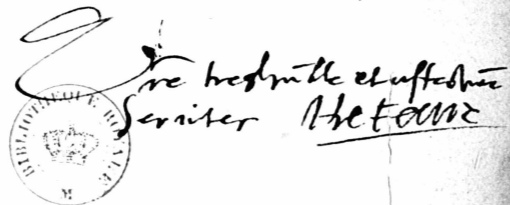 Vre treshũble et affectioné
serviter
BIBLIOTHEQUE ROYALE
M